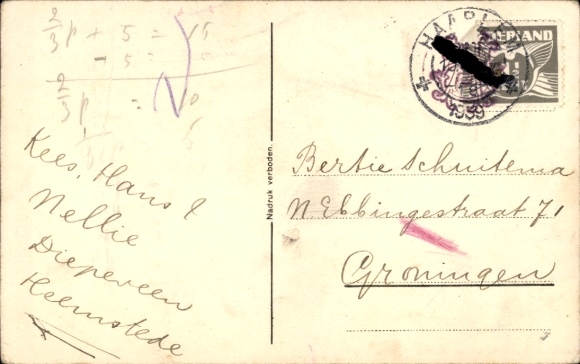 2/3 p + 5 = 15
- 5 =
2/3 p = 10
Kees, Hans &
Nellie
Diepeveen
Heemstede
Nadruk verboden.
HAARLEM
1939
NEDERLAND
Bertie Schuitema
N. Ebbingestraat 71
Groningen